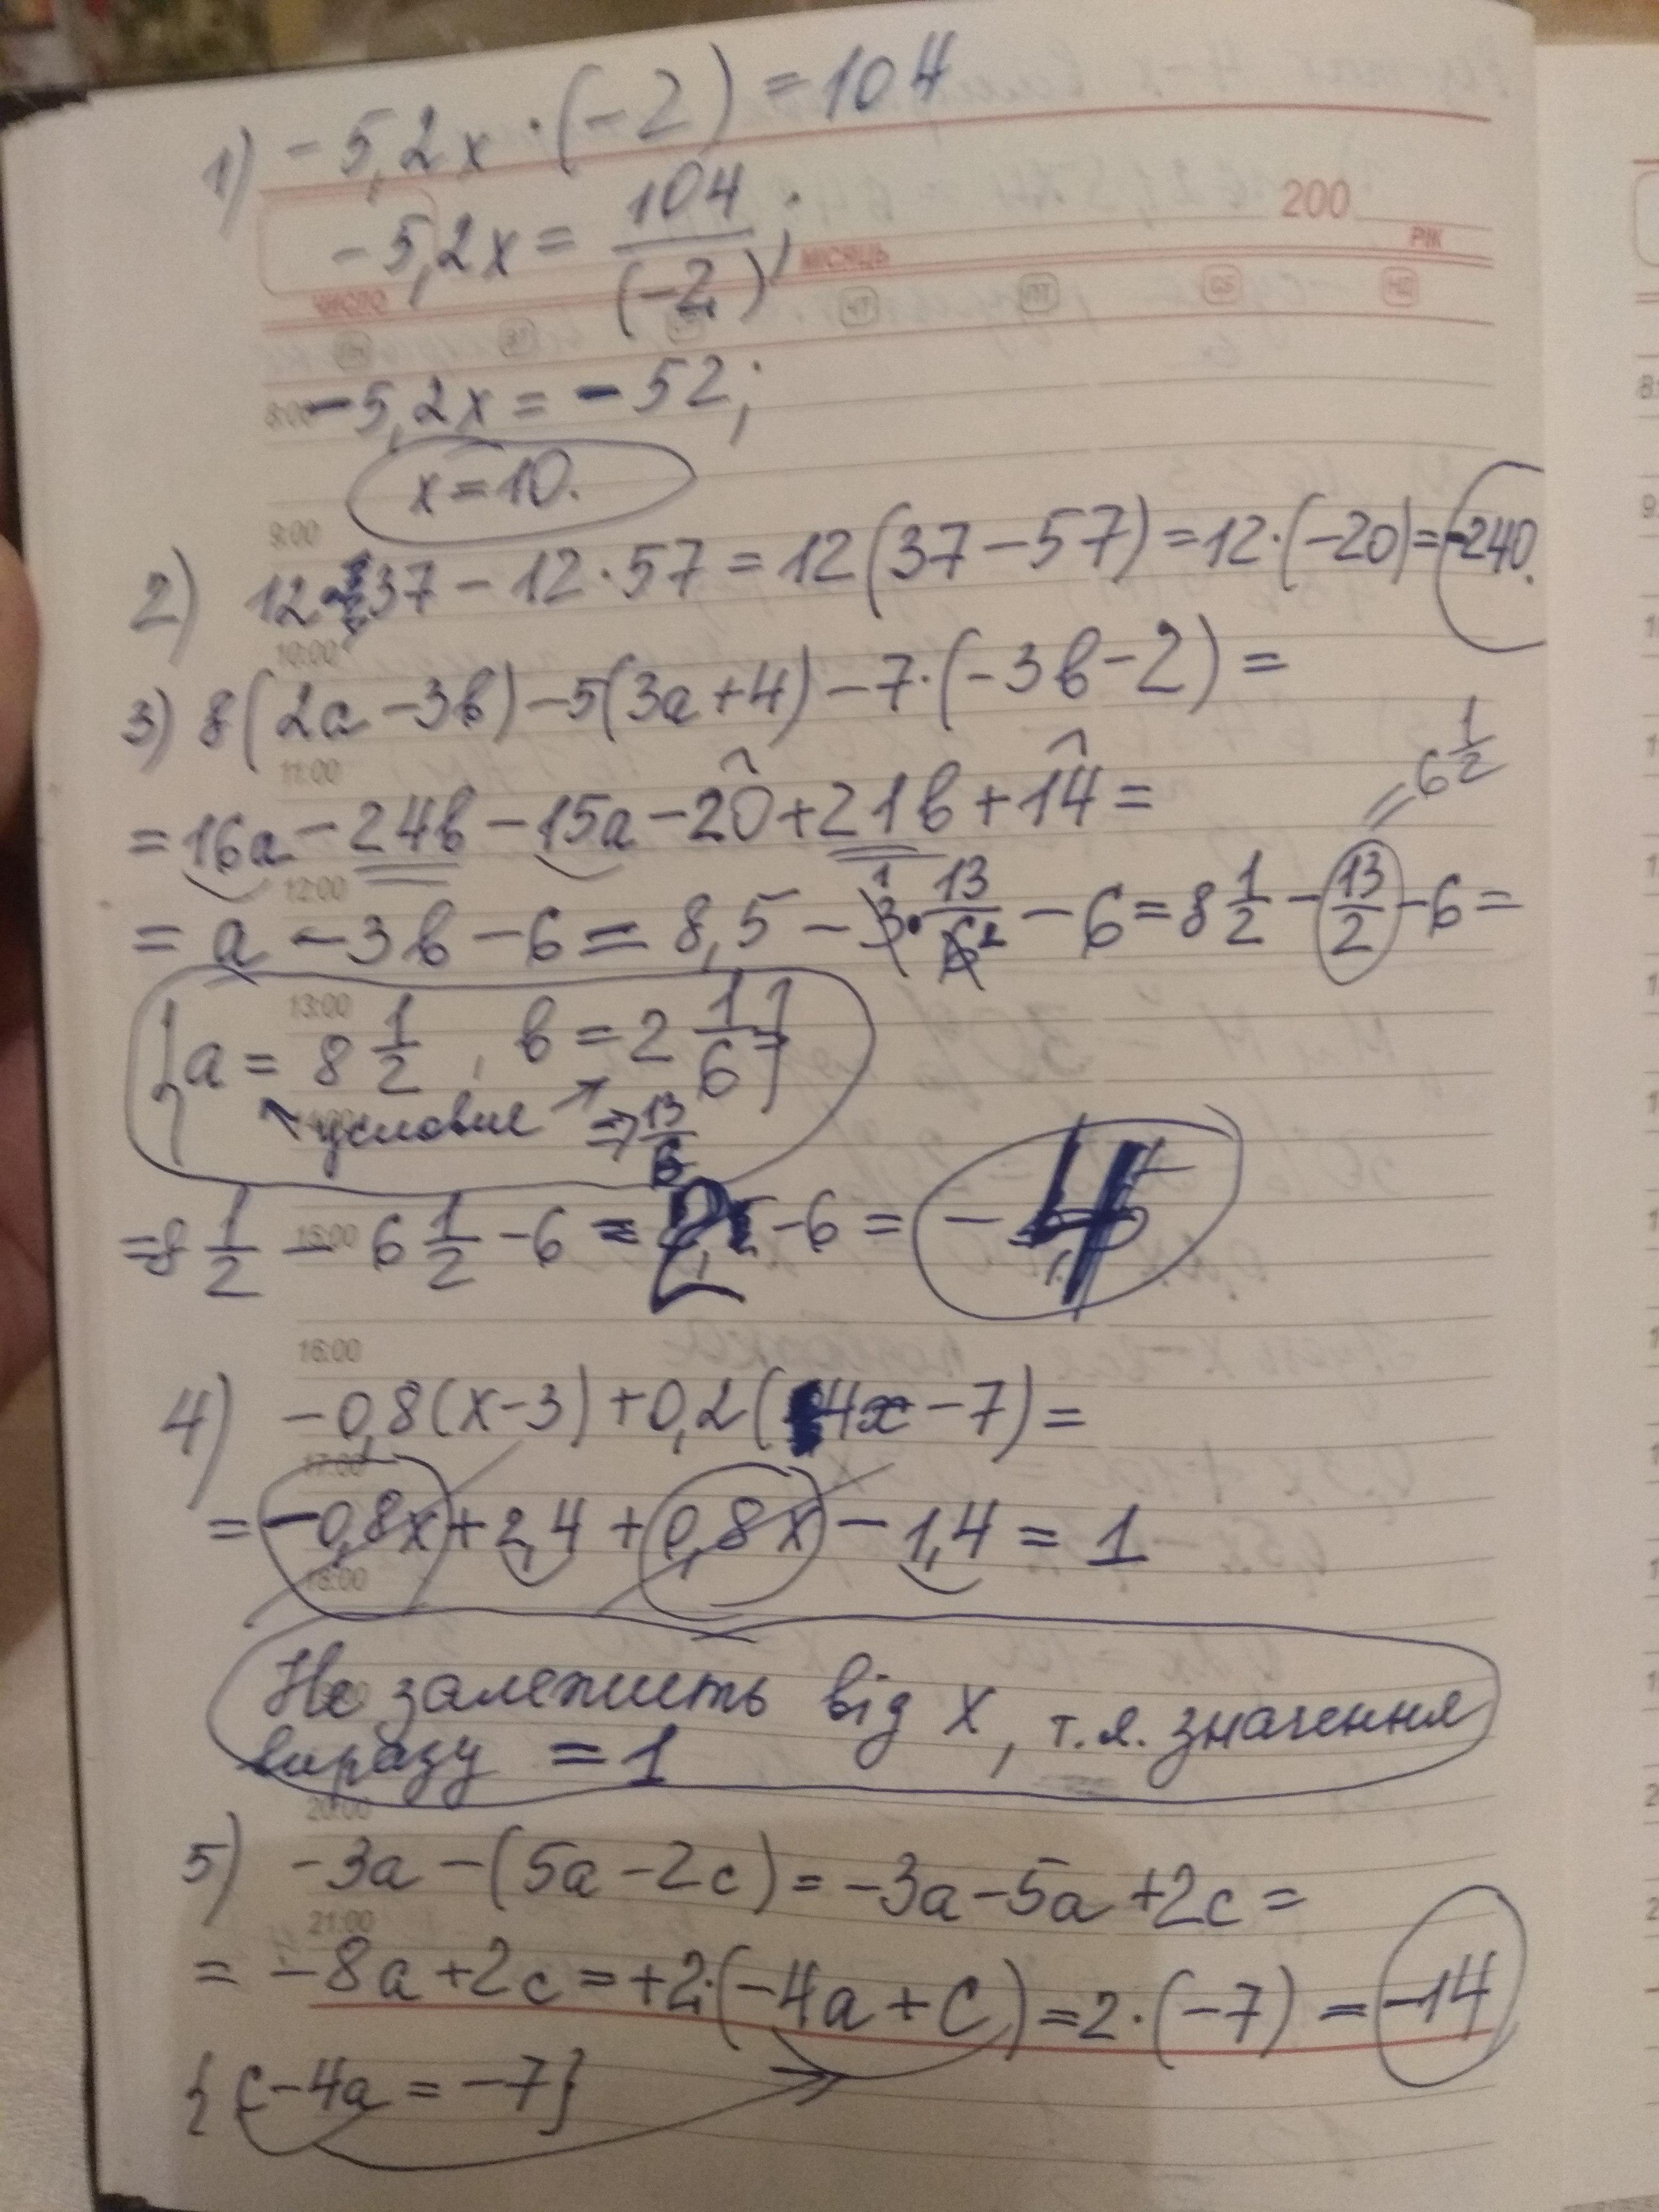 1) -5,2x·(-2) = 104
200
РІК
-5,2x = 104/(-2);
ЧИСЛО МІСЯЦЬ
ПН ВТ ЧТ ПТ СБ НД
8:00 -5,2x = -52;
x = 10.
9:00
2) 12·37 - 12·57 = 12(37-57) = 12·(-20) = -240.
10:00
3) 8(2a-3в)-5(3a+4)-7·(-3в-2) =
11:00
= 16a - 24в - 15a - 20 + 21в + 14 =
= 6 1/2
12:00
= a - 3в - 6 = 8,5 - 3·13/6 - 6 = 8 1/2 - 13/2 - 6 =
1 2
13:00
{a = 8 1/2, в = 2 1/6}
условие => 13/6
15:00
= 8 1/2 - 6 1/2 - 6 = 2 - 6 = -4
16:00
4) -0,8(x-3)+0,2(4x-7) =
17:00
= -0,8x + 2,4 + 0,8x - 1,4 = 1
18:00
Не залежить від x, т.я. значення
виразу = 1
20:00
5) -3a-(5a-2c) = -3a-5a+2c =
21:00
= -8a+2c = +2·(-4a+c) = 2·(-7) = -14
{c-4a = -7}